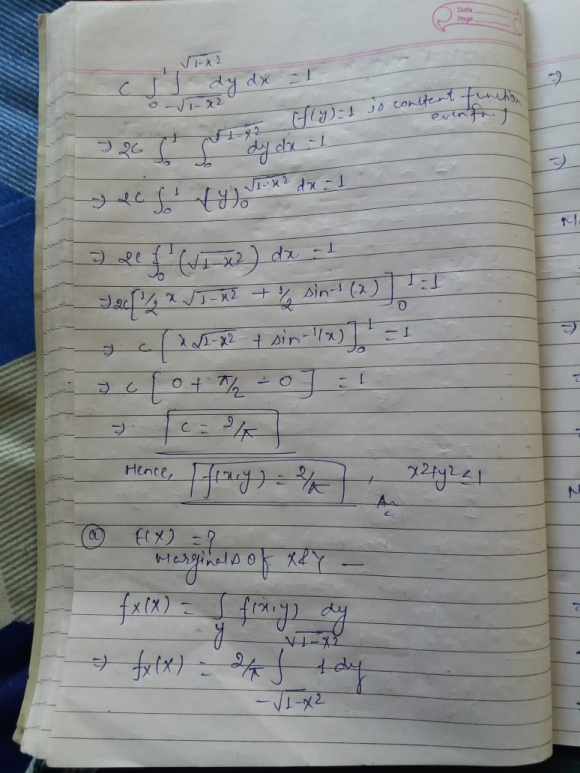 Date
Page
c ∫₀¹ ∫_{-√1-x²}^{√1-x²} dy dx = 1
⇒ 2c ∫₀¹ ∫₀^{√1-x²} dy dx = 1 (f(y)=1 is constant function even fn.)
⇒ 2c ∫₀¹ (y)₀^{√1-x²} dx = 1
⇒ 2c ∫₀¹ (√1-x²) dx = 1
⇒ 2c [1/2 x √1-x² + 1/2 sin⁻¹(x)]₀¹ = 1
⇒ c [x√1-x² + sin⁻¹(x)]₀¹ = 1
⇒ c [0 + π/2 - 0] = 1
⇒ c = 2/π
Hence, f(x,y) = 2/π , x²+y² ≤ 1
Ans
(a) f(x) = ?
Marginals Of X & Y —
fx(x) = ∫_y f(x,y) dy
⇒ fx(x) = 2/π ∫_{-√1-x²}^{√1-x²} 1 dy